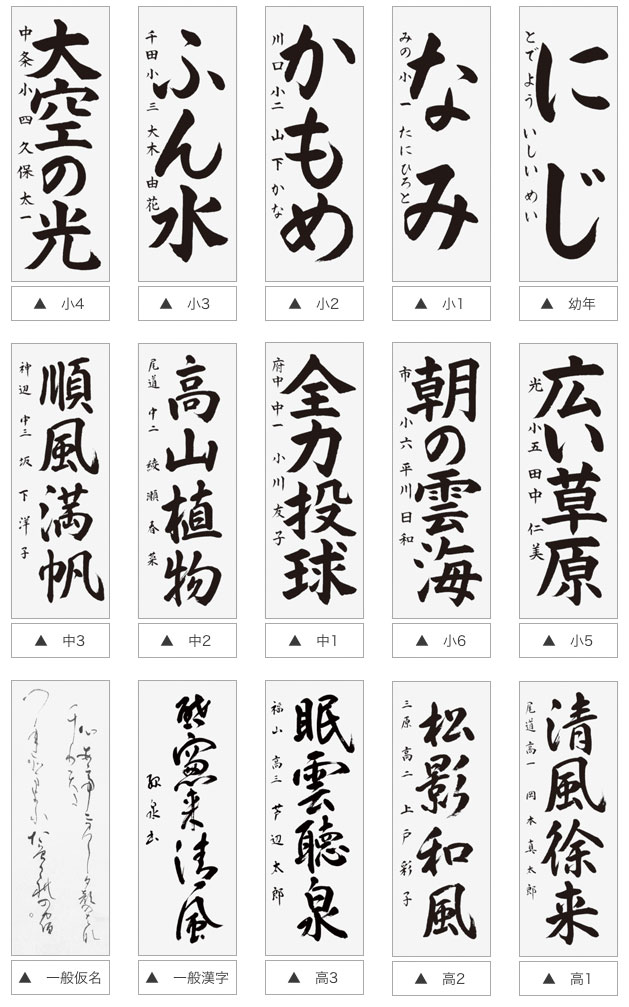 にじ
とでよう いしい めい
▲ 幼年
なみ
みの小一 たにひろと
▲ 小1
かもめ
川口小二 山下かな
▲ 小2
ふん水
千田小三 大木由花
▲ 小3
大空の光
中条小四 久保太一
▲ 小4
広い草原
光小五 田中仁美
▲ 小5
朝の雲海
市小六 平川日和
▲ 小6
全力投球
府中中一 小川友子
▲ 中1
高山植物
尾道中二 綾瀬春菜
▲ 中2
順風満帆
神辺中三 坂下洋子
▲ 中3
清風徐来
尾道高一 岡本真太郎
▲ 高1
松影和風
三原高二 上戸彩子
▲ 高2
眠雲聴泉
福山高三 芦辺太郎
▲ 高3
来清風
▲ 一般漢字
▲ 一般仮名